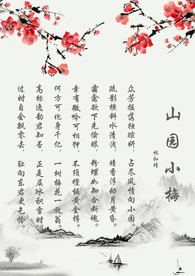 山园小梅
林和靖
众芳摇落独暄妍 占尽风情向小园
疏影横斜水清浅 暗香浮动月黄昏
霜禽欲下先偷眼 粉蝶如知合断魂
幸有微吟可相狎 不须檀板共金樽
何方可化身千亿 一树梅花一放翁
高标逸韵君知否 正是层冰积雪时
过时自会飘零去 耻向东君更乞怜